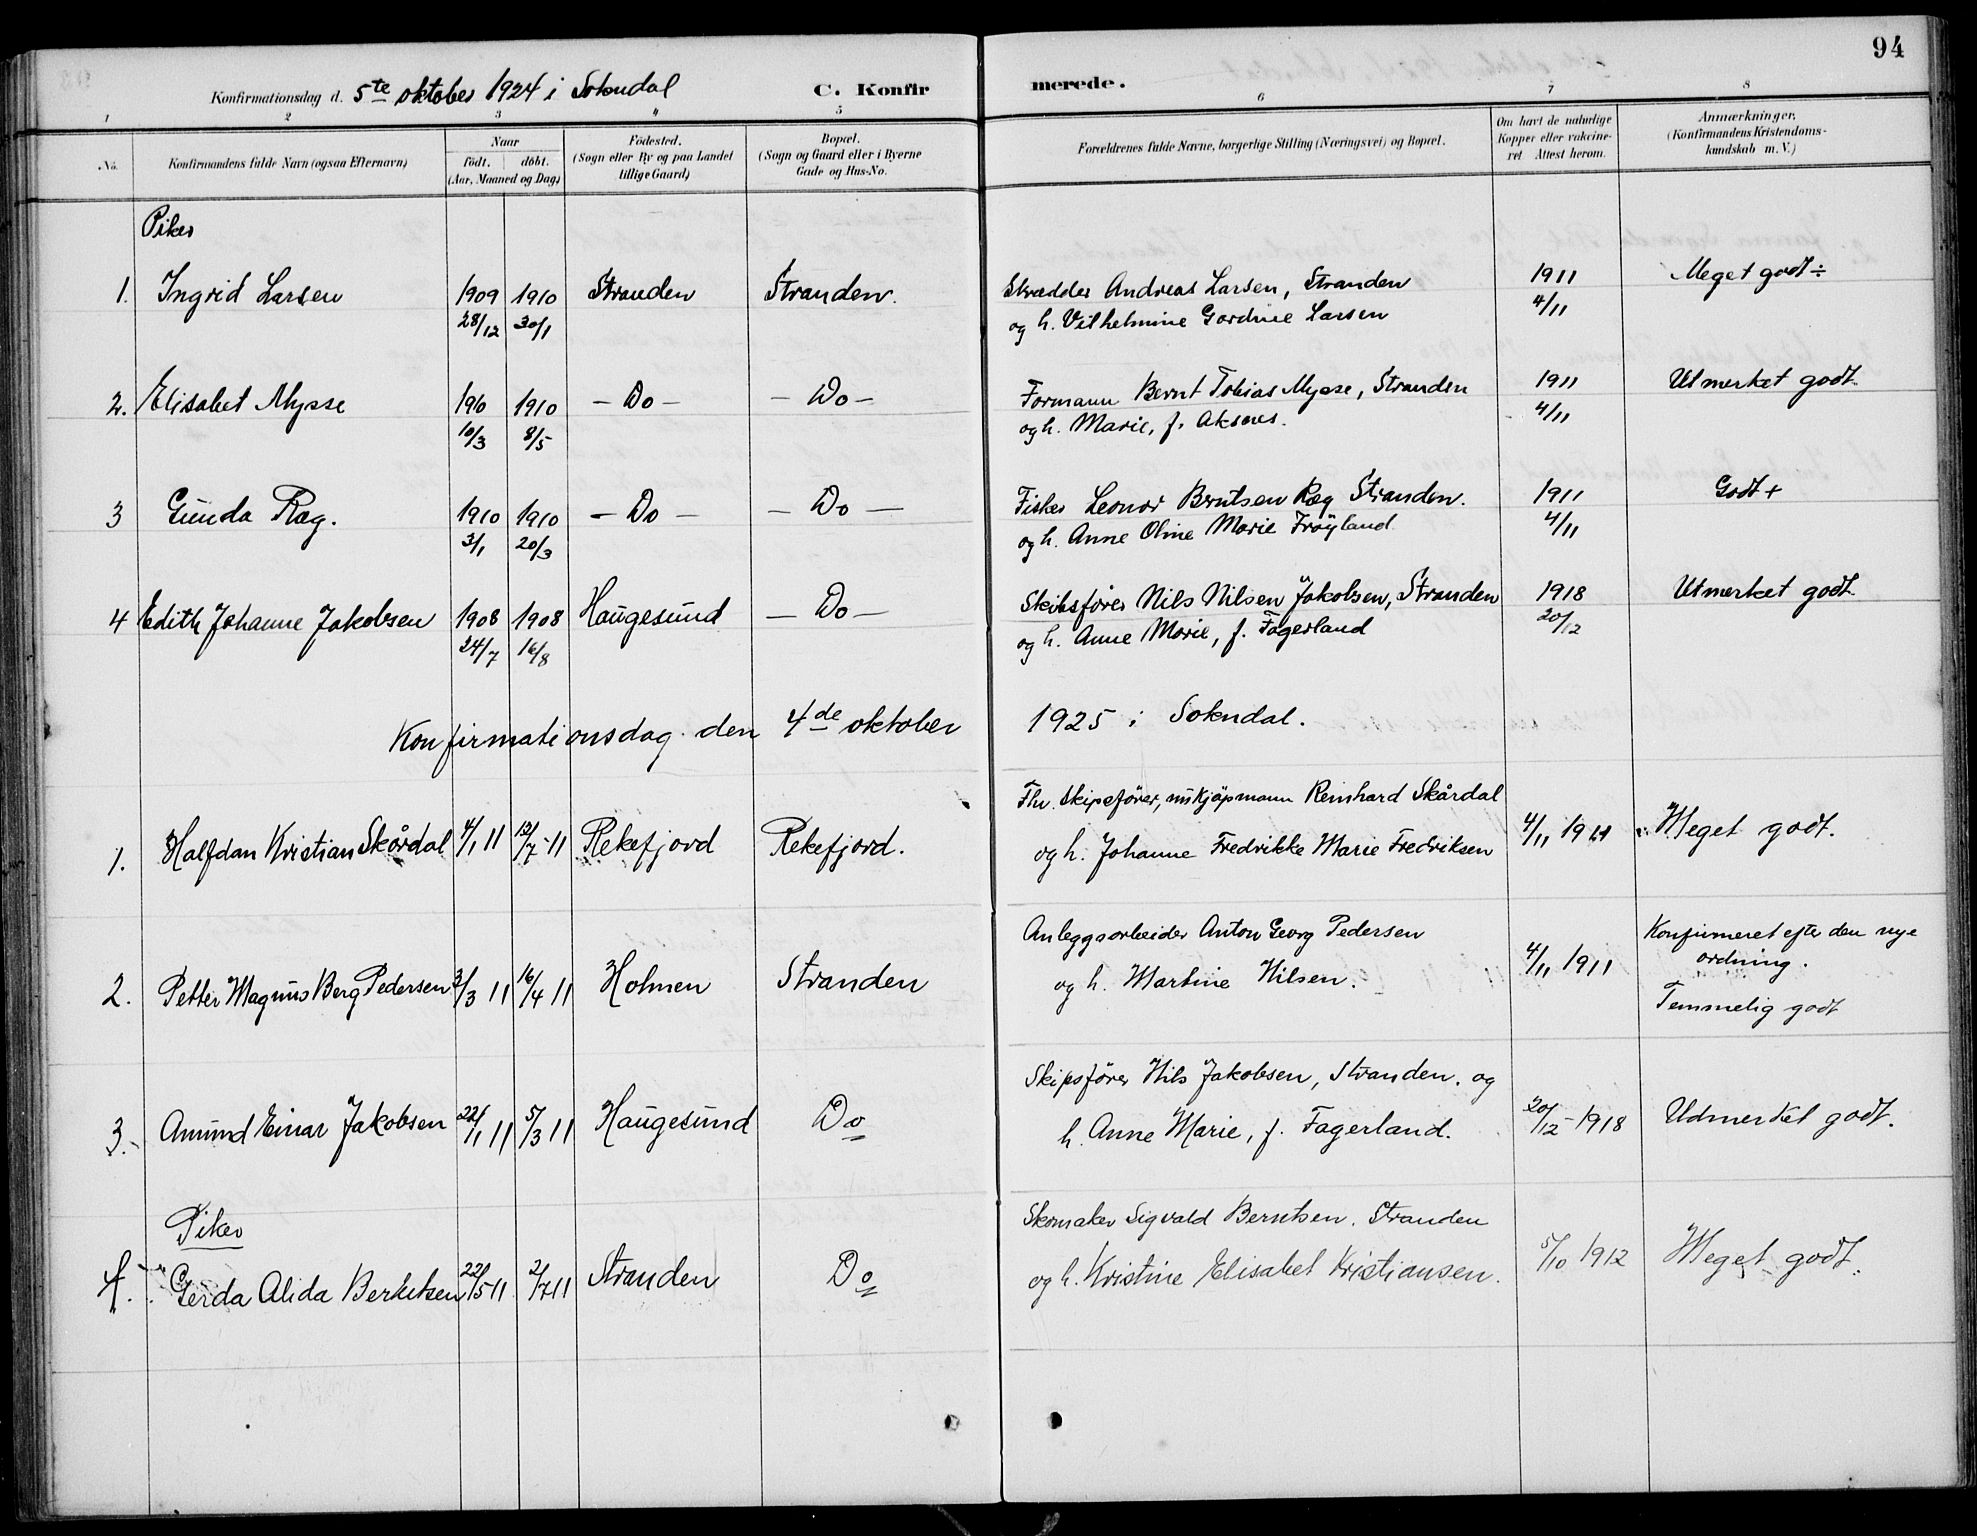 94
Konfirmationsdag d. 5te oktober 1924 i Sokndal C. Konfirmerede.
1 2 3 4 5 6 7 8
No. Konfirmandens fulde Navn (ogsaa Efternavn) Naar født. døbt. (Aar, Maaned og Dag) Fødested. (Sogn eller By og paa Landet tillige Gaard) Bopæl. (Sogn og Gaard eller i Byerne Gade og Hus-No. Forældrenes fulde Navne, borgerlige Stilling (Næringsvei) og Bopæl. Om havt de naturlige Kopper eller vakcineret Attest herom. Anmærkninger. (Konfirmandens Kristendomskundskab m. V.)
Piker
1. Ingrid Larsen 1909 1910 Stranden Stranden. Skrædder Andreas Larsen, Stranden 1911 Meget godt ÷
28/12 30/1 og h. Vilhelmine Gordine Larsen 4/11
2. Elisabet Mysse 1910 1910 - Do - - Do - Formann Bernt Tobias Mysse, Stranden 1911 Utmerket godt.
10/3 8/5 og h. Marie, f. Aksnes. 4/11
3 Gunda Ræg. 1910 1910 - Do - - Do - Fisker Leonor Berntsen Ræg Stranden. 1911 Godt +
3/1 20/3 og h. Anne Oline Marie Frøyland 4/11
4 Edith Johanne Jakobsen 1908 1908 Haugesund - Do - Skibsfører Nils Nilsen Jakobsen, Stranden 1918 Utmerket godt.
24/7 16/8 og h. Anne Marie, f. Fagerland 20/12
Konfirmationsdag den 4de oktober 1925 i Sokndal.
Fhv. skipsfører, nu kjøpmann Reinhard Skårdal
1. Halfdan Kristian Skårdal 4/1 11 12/7-11 Rekefjord Rekefjord. og h. Johanne Fredrikke Marie Fredriksen 4/11 1911 Meget godt.
Anleggsarbeider Anton Georg Pedersen Konfirmeret efter den nye
2. Petter Magnus Berg Pedersen 3/3 11 16/4 11 Holmen Stranden og h. Martine Nilsen. 4/11 1911 ordning.
Temmelig godt
Skipsfører Nils Jakobsen, Stranden. og
3. Amund Einar Jakobsen 22/1 11 5/3 11 Haugesund Do h. Anne Marie, f. Fagerland. 20/12-1918 Udmerket godt.
Piker
Skomaker Sigvald Berntsen. Stranden
1. Gerda Alida Berntsen 22/5 11 2/7 11 Stranden Do og h. Kristine Elisabet Kristiansen. 5/10 1912 Meget godt.